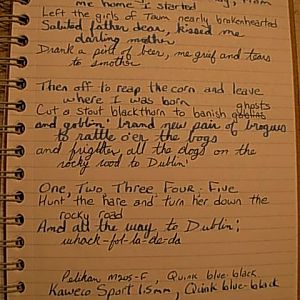 me home I started
Left the girls of Tuam nearly brokenhearted
Saluted father dear, kissed me
darling mother
Drank a pint of beer, me grief and tears
to smother
Then off to reap the corn and leave
where I was born
ghosts
Cut a stout blackthorn to banish goblins
and goblin' brand new pair of brogues
to rattle o'er the bogs
and frighten all the dogs on the
rocky road to Dublin!
One, Two, Three Four, Five
Hunt the hare and turn her down the
rocky road
And all the way to Dublin;
whack-fol-la-de-da
Pelikan M205-F, Quink blue-black
Kaweco Sport 1.5mm, Quink blue-black